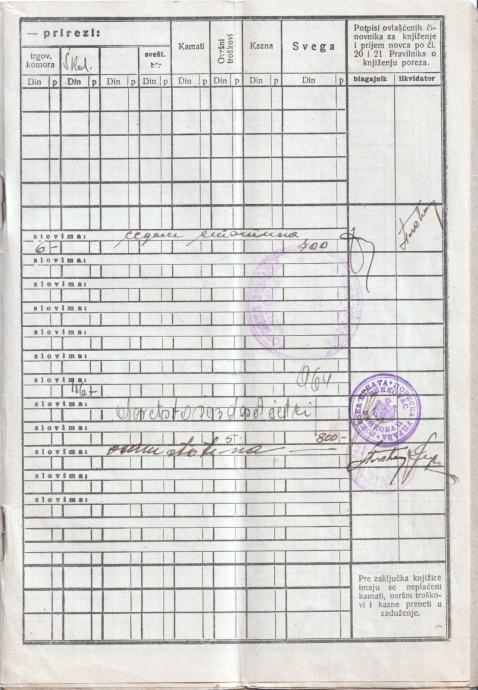 — prirezi:
trgov. komora
Škol.
svešt. bir
Kamati
Ovršni troškovi
Kazna
Svega
Potpisi ovlašćenih či-
novnika za knjiženje
i prijem novca po čl.
20 i 21 Pravilnika o
knjiženju poreza.
Din p Din p Din p Din p Din p Din p Din p Din p
blagajnik likvidator
slovima: седам стотина
6- 700
slovima:
slovima:
slovima:
slovima:
slovima:
slovima:
116- 964
slovima:
5- 800-
slovima: osam stotina
slovima:
slovima:
PORESKA UPRAVA
BENKOVAC
Pre zaključka knjižice
imaju se neplaćeni
kamati, ovršni troško-
vi i kazne preneti u
zaduženje.